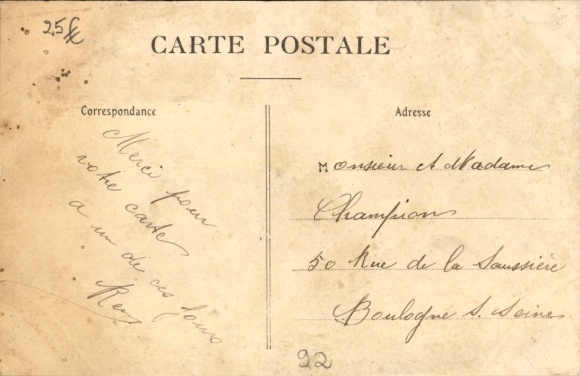 25 fr
CARTE POSTALE
Correspondance
Merci pour
votre carte
a un de ces jours
Adresse
Monsieur et Madame
Champion
50 Rue de la Saussiere
Boulogne s. Seine
92